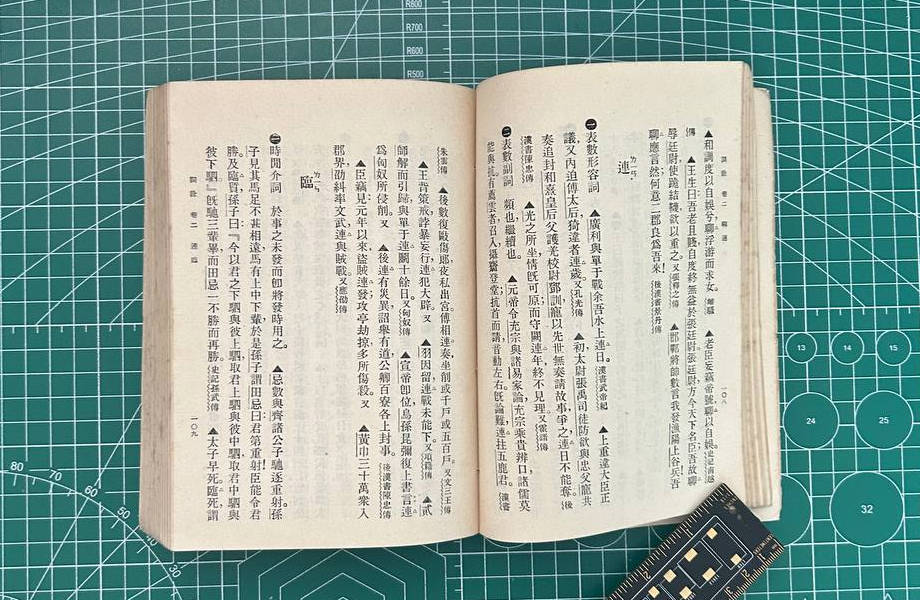 詞詮 卷二 聊連
一〇八
▲和調度以自娛兮，聊浮游而求女。離騷 ▲老臣妄竊帝號，聊以自娛。史記南越
傳 ▲王生曰：吾老且賤，自度終無益於張廷尉。張廷尉方今天下名臣，吾故聊
辱廷尉，使跪結韈，欲以重之。又張釋之傳 ▲邯鄲將帥數言我發漁陽上谷兵，吾
聊應言然，何意二郡良爲吾來！後漢書景丹傳
連 ㄌㄧㄢ
㊀表數形容詞 ▲廣利與單于戰余吾水上連日。漢書武帝紀 ▲上重違大臣正
議，又內迫傅太后，猗違者連歲。又孔光傳 ▲初太尉張禹司徒防欲與忠父寵共
奏追封和熹皇后父護羌校尉鄧訓，寵以先世無奏請故事，爭之連日不能奪。後
漢書陳忠傳 ▲光之所坐情旣可原，而守闕連年，終不見理。又霍諝傳
㊁表數副詞 頻也，繼續也。 ▲元帝令充宗與諸易家論，充宗乘貴辨口，諸儒莫
能與抗，有薦雲者，召入，攝齌登堂，抗首而請，音動左右。旣論難，連拄五鹿君。漢書
朱雲傳 ▲後數復毆傷郎，夜私出宮，傅相連奏，坐削或千戶或五百戶。又文三王傳
▲王背策戒，誖暴妄行，連犯大辟。又 ▲羽因留，連戰未能下。又項籍傳 ▲貳
師解而引歸，與單于連鬭十餘日。又匈奴傳 ▲宣帝卽位，烏孫昆彌復上書言：連
爲匈奴所侵削。又 ▲後連有災異，詔舉有道，公卿百寮各上封事。後漢書陳忠傳
▲臣竊見元年以來，盜賊連發，攻亭劫掠，多所傷殺。又 ▲黃巾三十萬衆入
郡界，劭糾率文武連與賊戰。又應劭傳
臨 ㄌㄧㄣ
㊀時間介詞 於事之未發而卽將發時用之。 ▲忌數與齊諸公子馳逐重射，孫
子見其馬足不甚相遠，馬有上中下輩，於是孫子謂田忌曰：君第重射！臣能令君
勝。及臨質，孫子曰：『今以君之下駟與彼上駟，取君上駟與彼中駟，取君中駟與
彼下駟。』旣馳三輩畢，而田忌一不勝而再勝。史記孫武傳 ▲太子早死，臨死謂
詞詮 卷二 連臨
一〇九